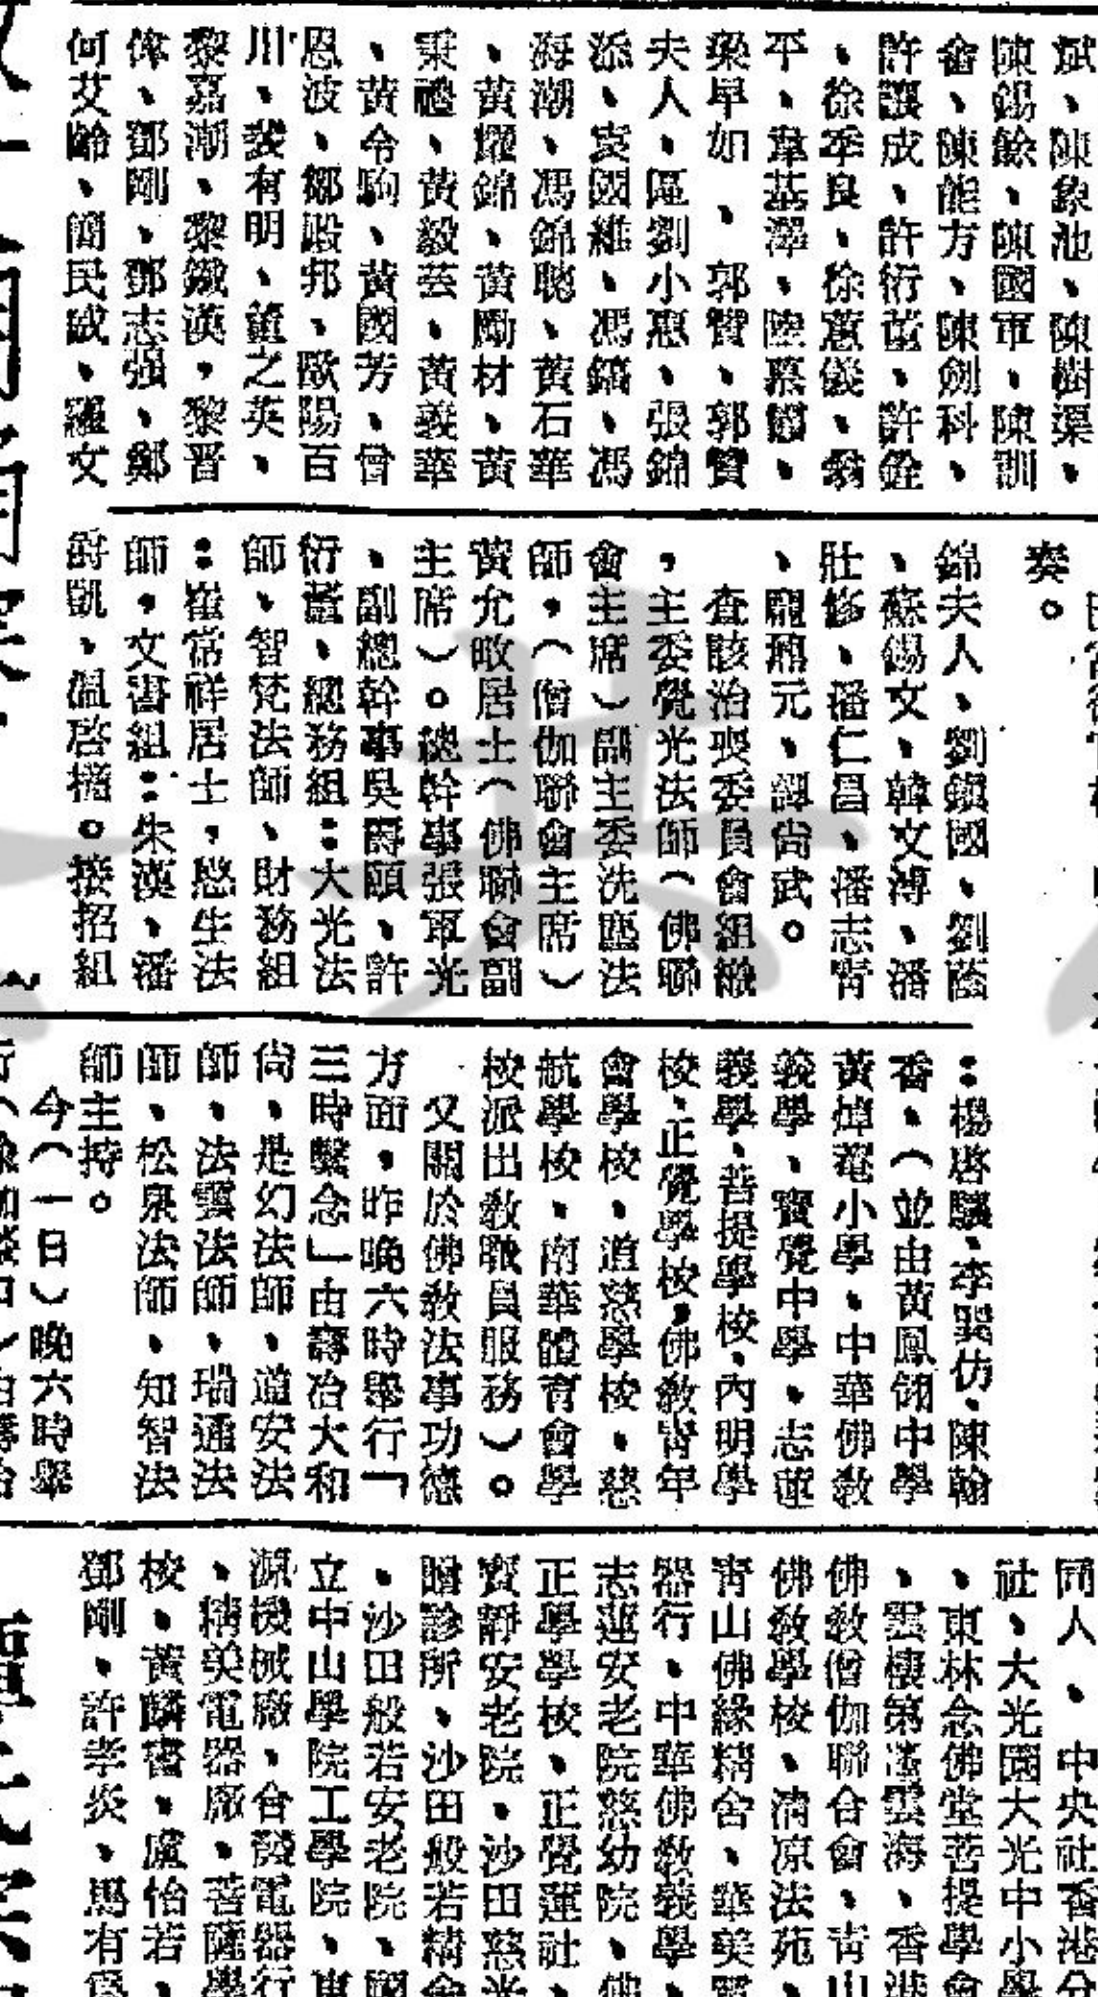 斌、陳象池、陳樹渠、
陳錫餘、陳國軍、陳訓
畬、陳能方、陳劍科、
許讓成、許衍董、許銓
、徐季良、徐蕙儀、翁
平、韋基澤、陸票
梁早如、郭贊、郭贊
夫人、區劉小惠、張錦
添、袁國維、馮鎬、馮
海潮、馮錦聰、黃石華
、黃耀錦、黃勵材、黃
秉禮、黃毅芸、黃義華
、黃令駒、黃國芳、曾
恩波、鄒殿邦、歐陽百
川、裴有明、董之英、
黎嘉潮、黎鐵漢，黎晋
偉、鄧剛、鄧志强、鄭
何艾齡、簡民威、羅文
奏。
錦夫人、劉鎮國、劉蔭
、蘇錫文、韓文溥、潘
壯修、潘仁昌、潘志靑
、元、譚尙武。
查該治喪委員會組織
，主委覺光法師（佛聯
會主席）副主委洗塵法
師，（僧伽聯會主席）
黃允畋居士（佛聯會副
主席）。總幹事張軍光
、副總幹事吳壽頤、許
衍董、總務組：大光法
師、智梵法師、財務組
：崔常祥居士，愍生法
師，文書組：朱漢、潘
爵凱、溫啓。接招組
：楊啓驥、李巽仿、陳翰
香、（並由黃鳳翎中學
黃焯菴小學、中華佛敎
義學、寶覺中學、志蓮
義學、菩提學校、內明學
校、正覺學校，佛敎靑年
會學校、道慈學校、慈
航學校、南華體育會學
校派出敎職員服務）。
又關於佛敎法事功德
方面，昨晚六時舉行「
三時繫念」由壽冶大和
尙、是幻法師、道安法
師、法雲法師、瑞通法
師、松泉法師、知智法
師主持。
今（一日）晚六時舉
同人、中央社香港分
社、大光園大光中小學
、東林念佛堂菩提學會
、雲棲第雲海、香港
佛敎僧伽聯合會、靑山
佛敎學校、淸凉法苑、
靑山佛緣精舍、華美電
器行、中華佛敎義學、
志蓮安老院慈幼院、佛
正學學校、正覺蓮社、
寶靜安老院、沙田慈光
贈診所、沙田般若精舍
、沙田般若安老院、國
立中山學院工學院、東
源機械廠，合發電器行
、精美電器廠、菩薩學
校、黃麟書、盧怡若、
鄧剛、許孝炎、馬有爲